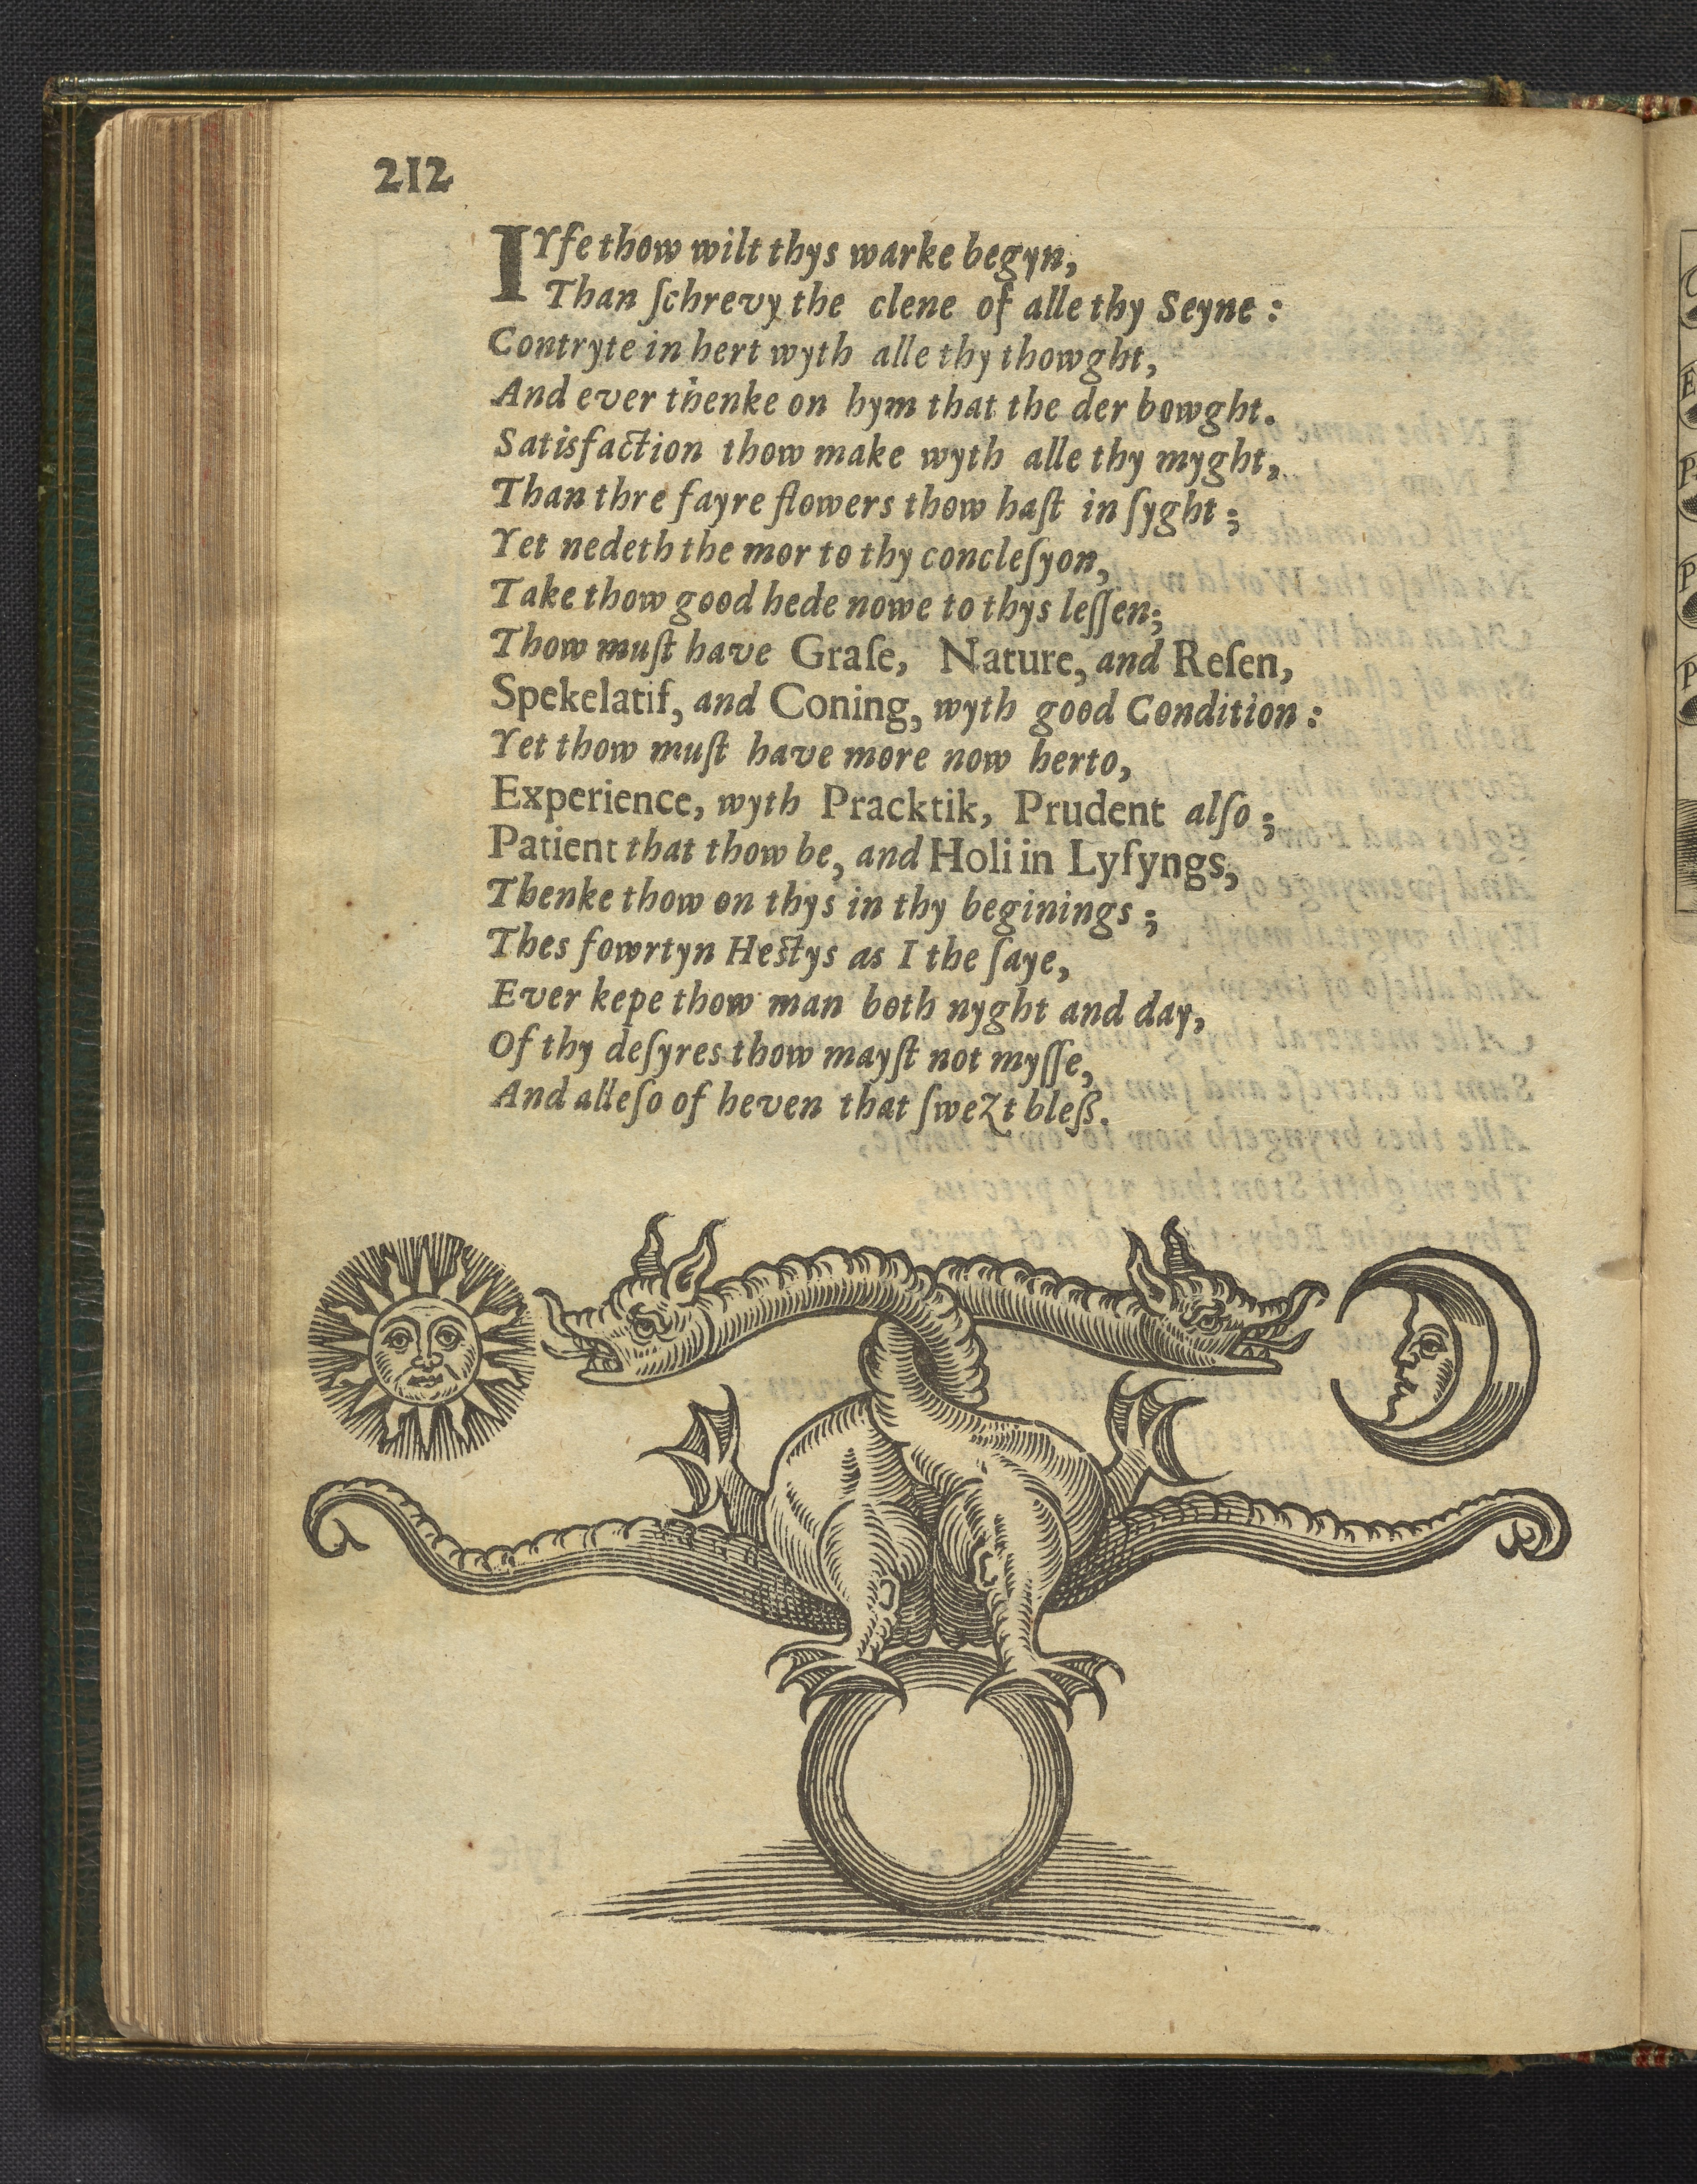 212
IYfe thow wilt thys warke begyn,
Than ſchrevy the clene of alle thy Seyne :
Contryte in hert wyth alle thy thowght,
And ever thenke on hym that the der bowght.
Satisfaction thow make wyth alle thy myght,
Than thre fayre flowers thow haſt in ſyght ;
Yet nedeth the mor to thy concleſyon,
Take thow good hede nowe to thys leſſen;
Thow muſt have Graſe, Nature, and Reſen,
Spekelatif, and Coning, wyth good Condition :
Yet thow muſt have more now herto,
Experience, wyth Pracktik, Prudent alſo ;
Patient that thow be, and Holi in Lyfyngs,
Thenke thow on thys in thy beginings ;
Thes fowrtyn Hestys as I the ſaye,
Ever kepe thow man both nyght and day,
Of thy deſyres thow mayſt not myſſe,
And alleſo of heven that ſweZt bleß.